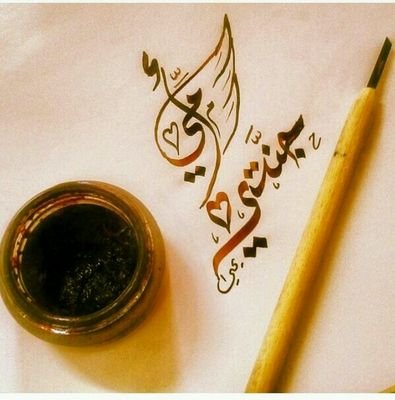 أمّي
جنّتي